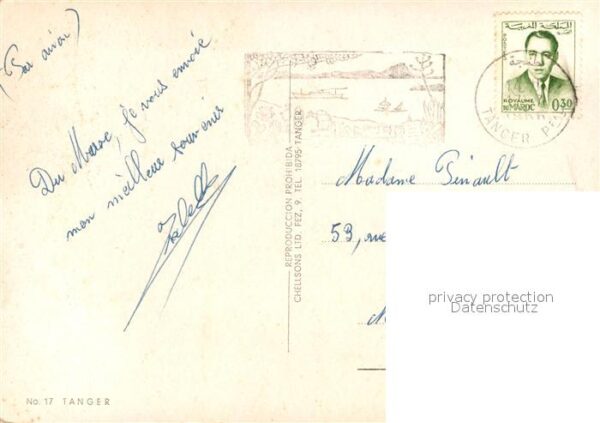 (Par avion)
Du Maroc, je vous envoie
mon meilleur souvenir
No. 17 TANGER
REPRODUCCION PROHIBIDA
CHELLSONS LTD FEZ, 9. TEL 18795 TANGER
المملكة المغربية
POSTES
ROYAUME
DU MAROC
0,30
TANGER
Madame Pinault
59, rue
privacy protection
Datenschutz